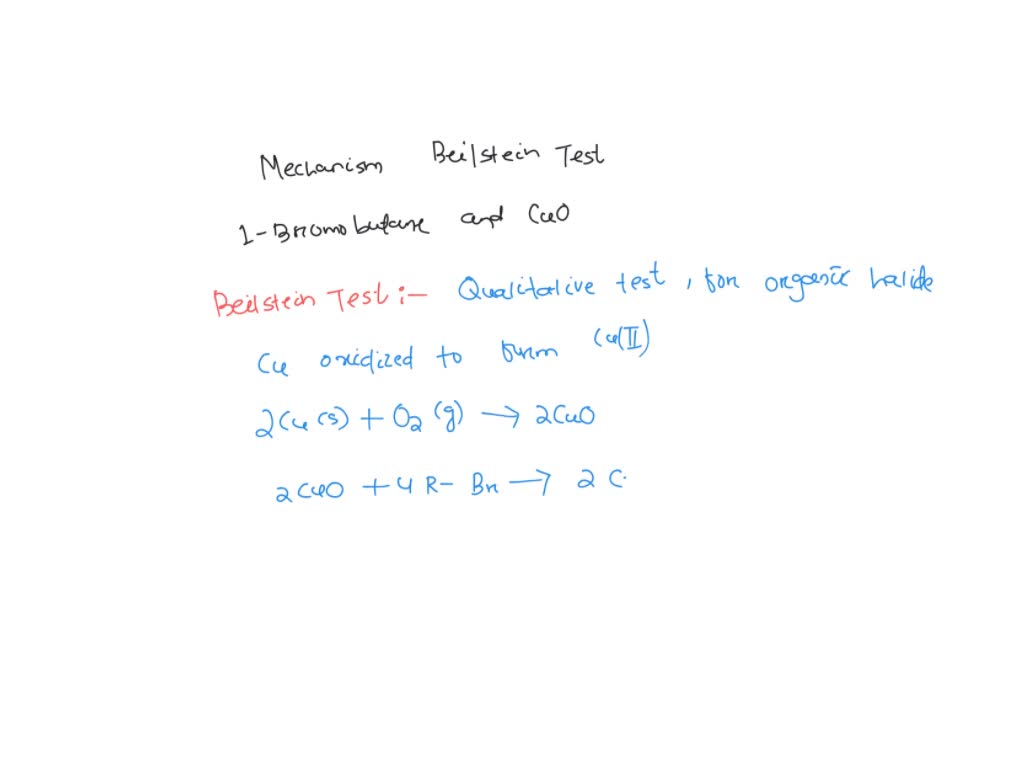 Mechanism Beilstein Test
1-Bromobutane and CuO
Beilstein Test :- Qualitative test, for organic halide
Cu oxidized to form Cu(II)
2Cu(s) + O₂(g) → 2CuO
2CuO + 4R-Br → 2C